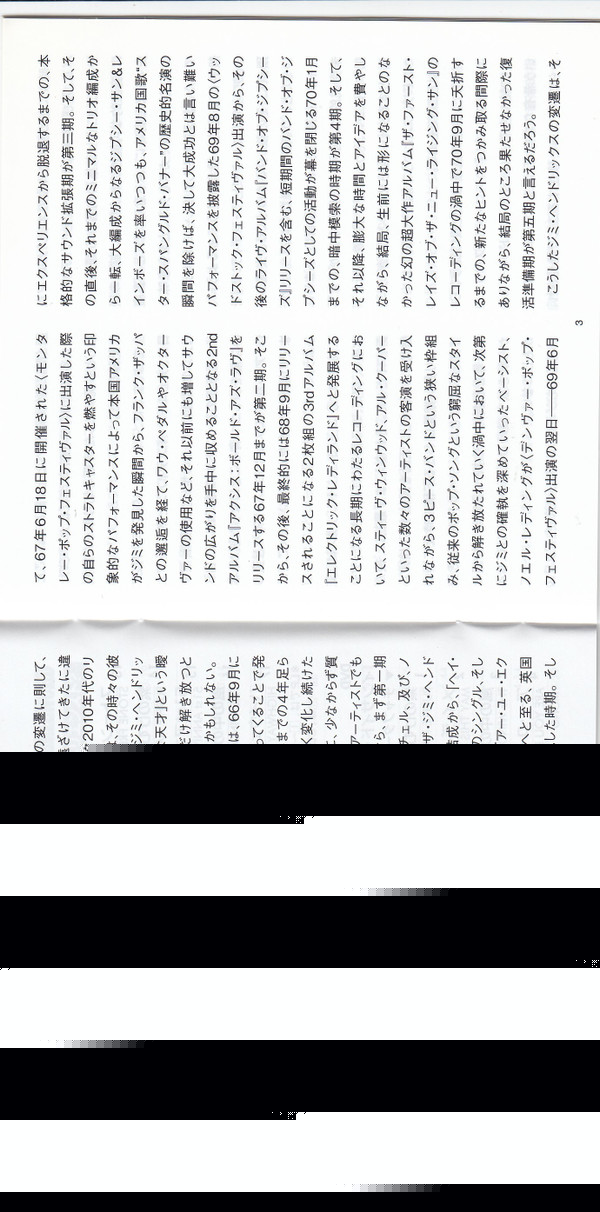 の変遷に則して、
遠ざけてきたに違
々2010年代のリ
は、その時々の彼
ジミ・ヘンドリッ
天才」という曖
だけ解き放つと
かもしれない。
は、66年9月に
ってくることで発
までの4年足ら
く変化し続けた
、少なからず質
アーティストでも
ら、まず第一期
チェル、及び、ノ
ザ・ジミ・ヘンド
結成から、「ヘイ・
のシングル、そし
アー・ユー・エク
へと至る、英国
した時期。そし
て、67年6月18日に開催された〈モンタ
レー・ポップ・フェスティヴァル〉に出演した際
の自らのストラトキャスターを燃やすという印
象的なパフォーマンスによって本国アメリカ
がジミを発見した瞬間から、フランク・ザッパ
との邂逅を経て、ワウ・ペダルやオクター
ヴァーの使用など、それ以前にも増してサウ
ンドの広がりを手中に収めることとなる2nd
アルバム『アクシス:ボールド・アズ・ラヴ』を
リリースする67年12月までが第二期。そこ
から、その後、最終的には68年9月にリリー
スされることになる2枚組の3rdアルバム
『エレクトリック・レディランド』へと発展する
ことになる長期にわたるレコーディングにお
いて、スティーヴ・ウィンウッド、アル・クーパー
といった数々のアーティストの客演を受け入
れながら、3ピース・バンドという狭い枠組
み、従来のポップ・ソングという窮屈なスタイ
ルから解き放たれていく渦中において、次第
にジミとの確執を深めていったベーシスト、
ノエル・レディングが〈デンヴァー・ポップ・
フェスティヴァル〉出演の翌日――69年6月
にエクスペリエンスから脱退するまでの、本
格的なサウンド拡張期が第三期。そして、そ
の直後、それまでのミニマルなトリオ編成か
ら一転、大編成からなるジプシー・サン&レ
インボーズを率いつつも、アメリカ国歌“ス
ター・スパングルド・バナー”の歴史的名演の
瞬間を除けば、決して大成功とは言い難い
パフォーマンスを披露した69年8月の〈ウッ
ドストック・フェスティヴァル〉出演から、その
後のライヴ・アルバム『バンド・オブ・ジプシー
ズ』リリースを含む、短期間のバンド・オブ・ジ
プシーズとしての活動が幕を閉じる70年1月
までの、暗中模索の時期が第4期。そして、
それ以降、膨大な時間とアイデアを費やし
ながら、結局、生前には形になることのな
かった幻の超大作アルバム『ザ・ファースト・
レイズ・オブ・ザ・ニュー・ライジング・サン』の
レコーディングの渦中で70年9月に夭折す
るまでの、新たなヒントをつかみ取る間際に
ありながら、結局のところ果たせなかった復
活準備期が第五期と言えるだろう。
こうしたジミ・ヘンドリックスの変遷は、そ
3